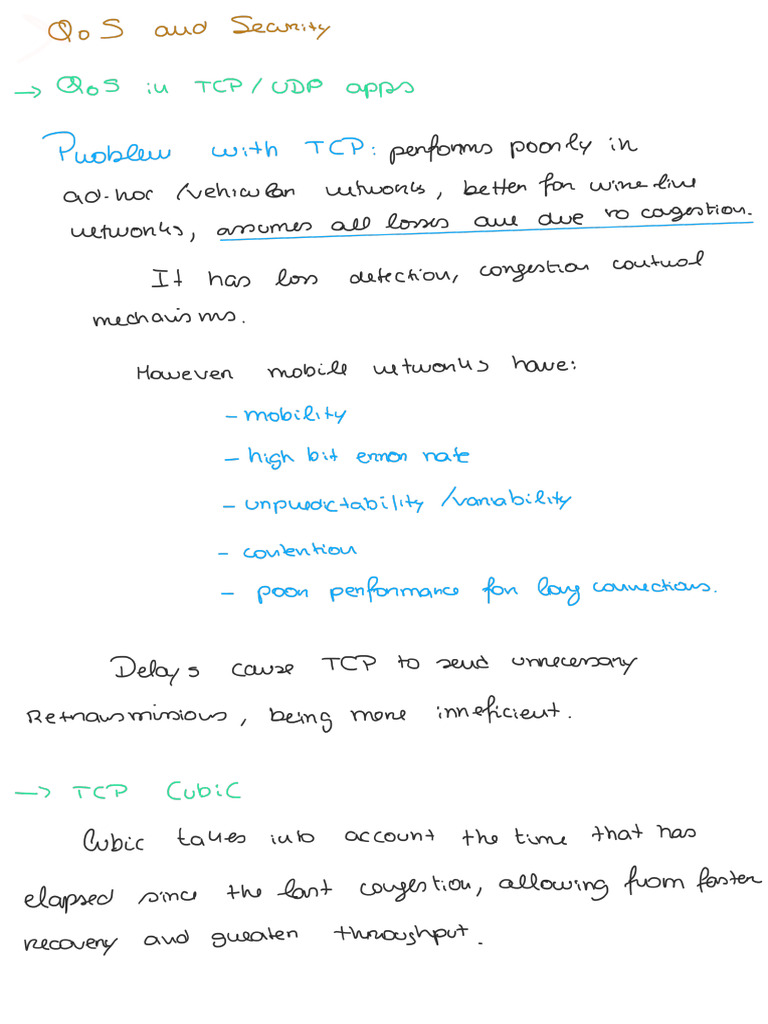 QoS and Security
→ QoS in TCP / UDP apps
Problem with TCP: performs poorly in
ad-hoc /vehicular networks, better for wire-line
networks, assumes all losses are due to cagestion.
It has loss detection, congestion control
mechanisms.
However mobile networks have:
- mobility
- high bit error rate
- unpredictability /variability
- contention
- poor performance for long connections.
Delays cause TCP to send unnecessary
Retransmissions, being more inneficient.
→ TCP Cubic
Cubic takes into account the time that has
elapsed since the last congestion, allowing from faster
recovery and greater throughput.